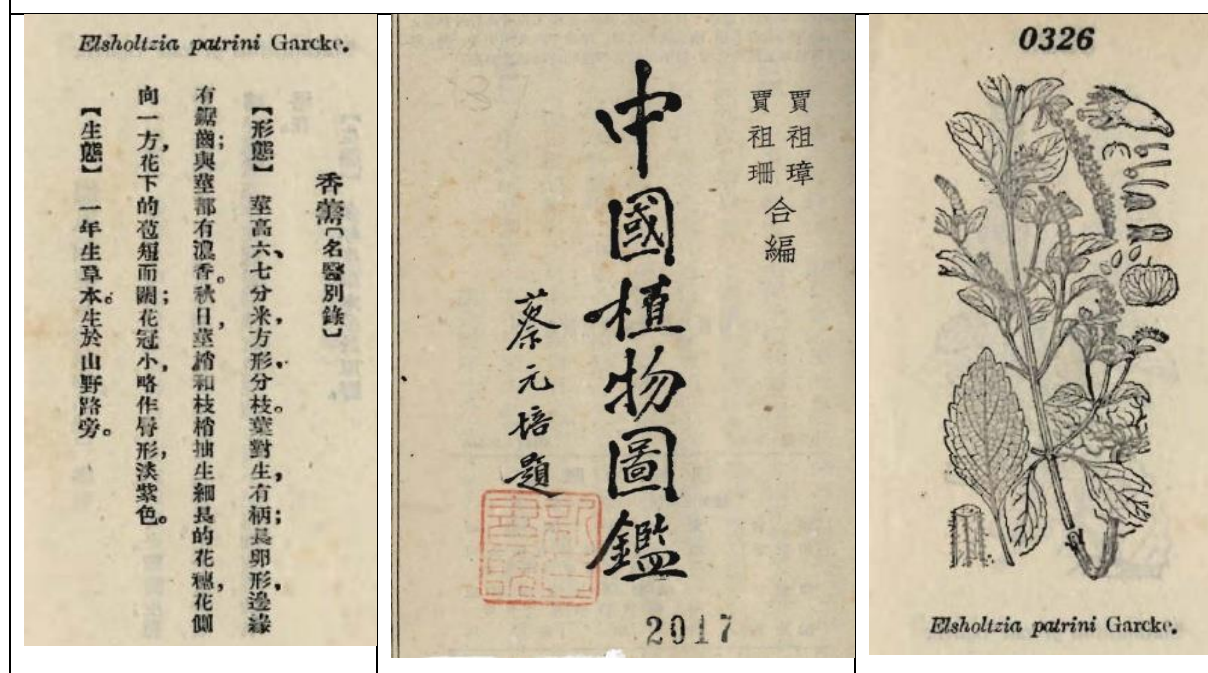 Elsholtzia patrini Garcke.
香薷〔名醫別錄〕
【形態】 莖高六、七分米,方形,分枝。葉對生,有柄;長卵形,邊緣
有鋸齒;與莖部有濃香。秋日,莖梢和枝梢抽生細長的花穗,花側
向一方,花下的苞短而闊;花冠小,略作唇形,淡紫色。
【生態】 一年生草本。生於山野路旁。
賈祖璋
賈祖珊
合編
中國植物圖鑑
蔡元培題
2017
0326
Elsholtzia patrini Garcke.